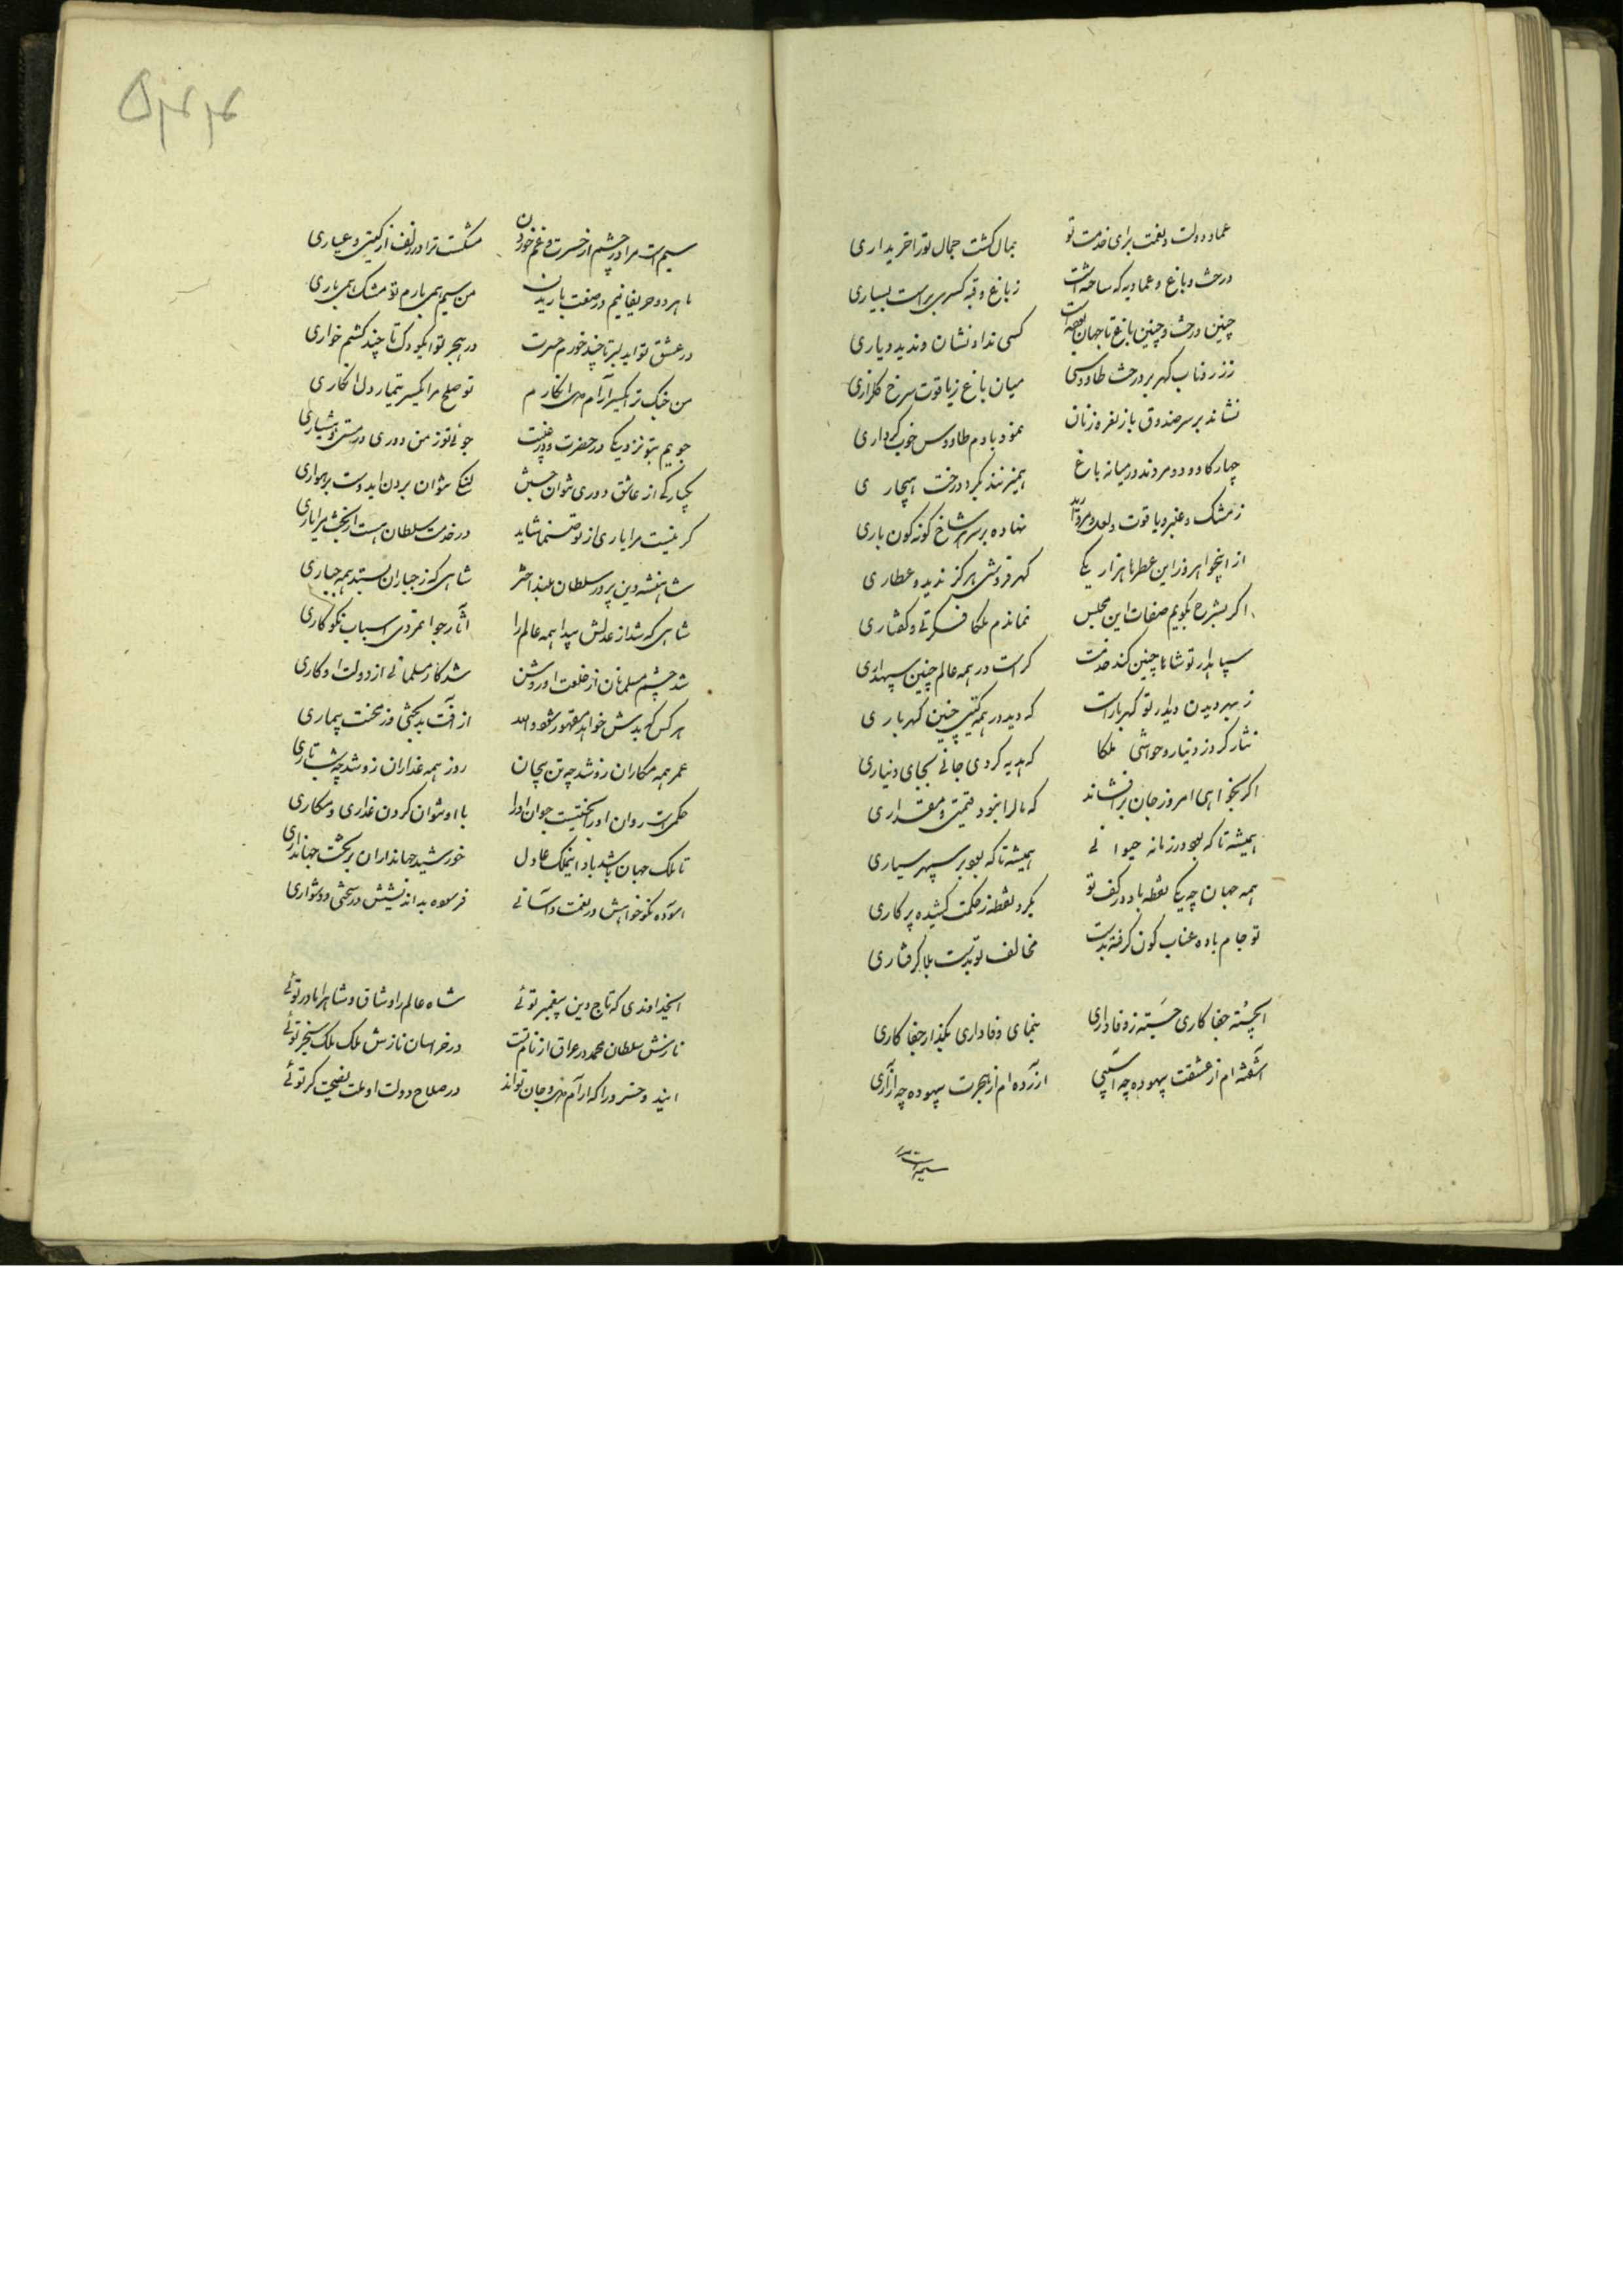 عماد دولت و نعمت برای خدمت تو بمال گشت جمال تو را خریداری
درخت و باغ و عماد به که ساخته است ز باغ و قبه کسری براست بسیاری
چنین درخت و چنین باغ تا جهان بوده است کسی نداد نشان و ندید دیاری
ز زر ناب گهر بر درخت طاووسی میان باغ ز یاقوت سرخ گلزاری
نشاند بر سر صندوق باز نعره زنان نمود با دم طاووس خوب کرداری
چهار گاو و دو مردند در میانه باغ همیزنند بگرد درخت هنجاری
ز مشک و عنبر و یاقوت و لعل و مروارید نهاده بر سر هر شاخ گونه گون باری
از اینجواهر وز این عطرها هزار یکی گهرفروشی هرگز ندید و عطاری
اگر بشرح بگویم صفات این مجلس نماندم ملکا فکرتی و گفتاری
سپاهدار تو شاها چنین کند خدمت کراست در همه عالم چنین سپهداری
ز بهر دیدن دیدار تو گهربار است که دید در همه گیتی چنین گهرباری
نثار کرد ز دینار و حواشی ملکا که هدیه کردی جانی بجای دیناری
اگر بخواهی امروز جان برافشاند که مال را نبود قیمتی و مقداری
همیشه تا که بود در زمانه حیوانی همیشه تا که بود بر سپهر سیاری
همه جهان چه یکی نقطه باد در کف تو بگرد نقطه ز حکمت کشیده پرکاری
تو جام باده عناب گون گرفته بدست مخالف تو بدست بلا گرفتاری
ایجسته جفا کاری جسته ز وفاداری بنمای وفاداری بگذار جفا کاری
آشفته ام از عشقت بیهوده چه آشیبی آزرده ام از هجرت بیهوده چه آزاری
سیم است مرا
سیم است مرا در چشم از حسرت و غم خوردن مشکست ترا در زلف از کشی و عیاری
ما هر دو حریفانیم در صفت باریدن من سیم همی بارم تو مشک همی باری
در عشق تو ایدلبر تا چند خورم حسرت در هجر تو ایکودک تا چند کشم خواری
من جنگ ترا یکسر آرام دل انگارم تو صلح مرا یکسر تیمار دل انگاری
جویم بتو نزدیکی در حضرت و در غیبت جوئی تو ز من دوری در مستی و هشیاری
یکبارگی از عاشق دوری نتوان جستن لنگی نتوان بردن ایدوست برهواری
گر نیست مرا یاری از تو صنما شاید در خدمت سلطان هست از بخت مرا یاری
شاهنشه دین پرور سلطان بلند اختر شاهی که ز جباران بستد همه جباری
شاهی که شد از عدلش پیدا همه عالم را آثار جوانمردی اسباب نکوکاری
شد چشم مسلمانان از طلعت او روشن شد کار مسلمانی از دولت او کاری
هر کس که بدش خواهد مقهور شود والله از آفت بدبختی وز محنت بیماری
عمر همه مکاران زو شد چه تن بیجان روز همه غداران زو شد چه شب تاری
حکمیست روان او را بختیست جوان او را با او نتوان کردن غداری و مکاری
تا ملک جهان باشد باد اینملک عادل خورشید جهانداران بر تخت جهانداری
آسوده نکوخواهش در نعمت و آسانی فرسوده بداندیشش در سختی و دشواری
ایخداوندی که تاج دین پیغمبر توئی شاه عالم را و شاق و شاه را مادر توئی
نازش سلطان محمد در عراق از نام تست در خراسان نازش ملک ملک سنجر توئی
ایند و خسرو را که آرام دل و جان تواند در صلاح دولت او ملت نصیحت گر توئی